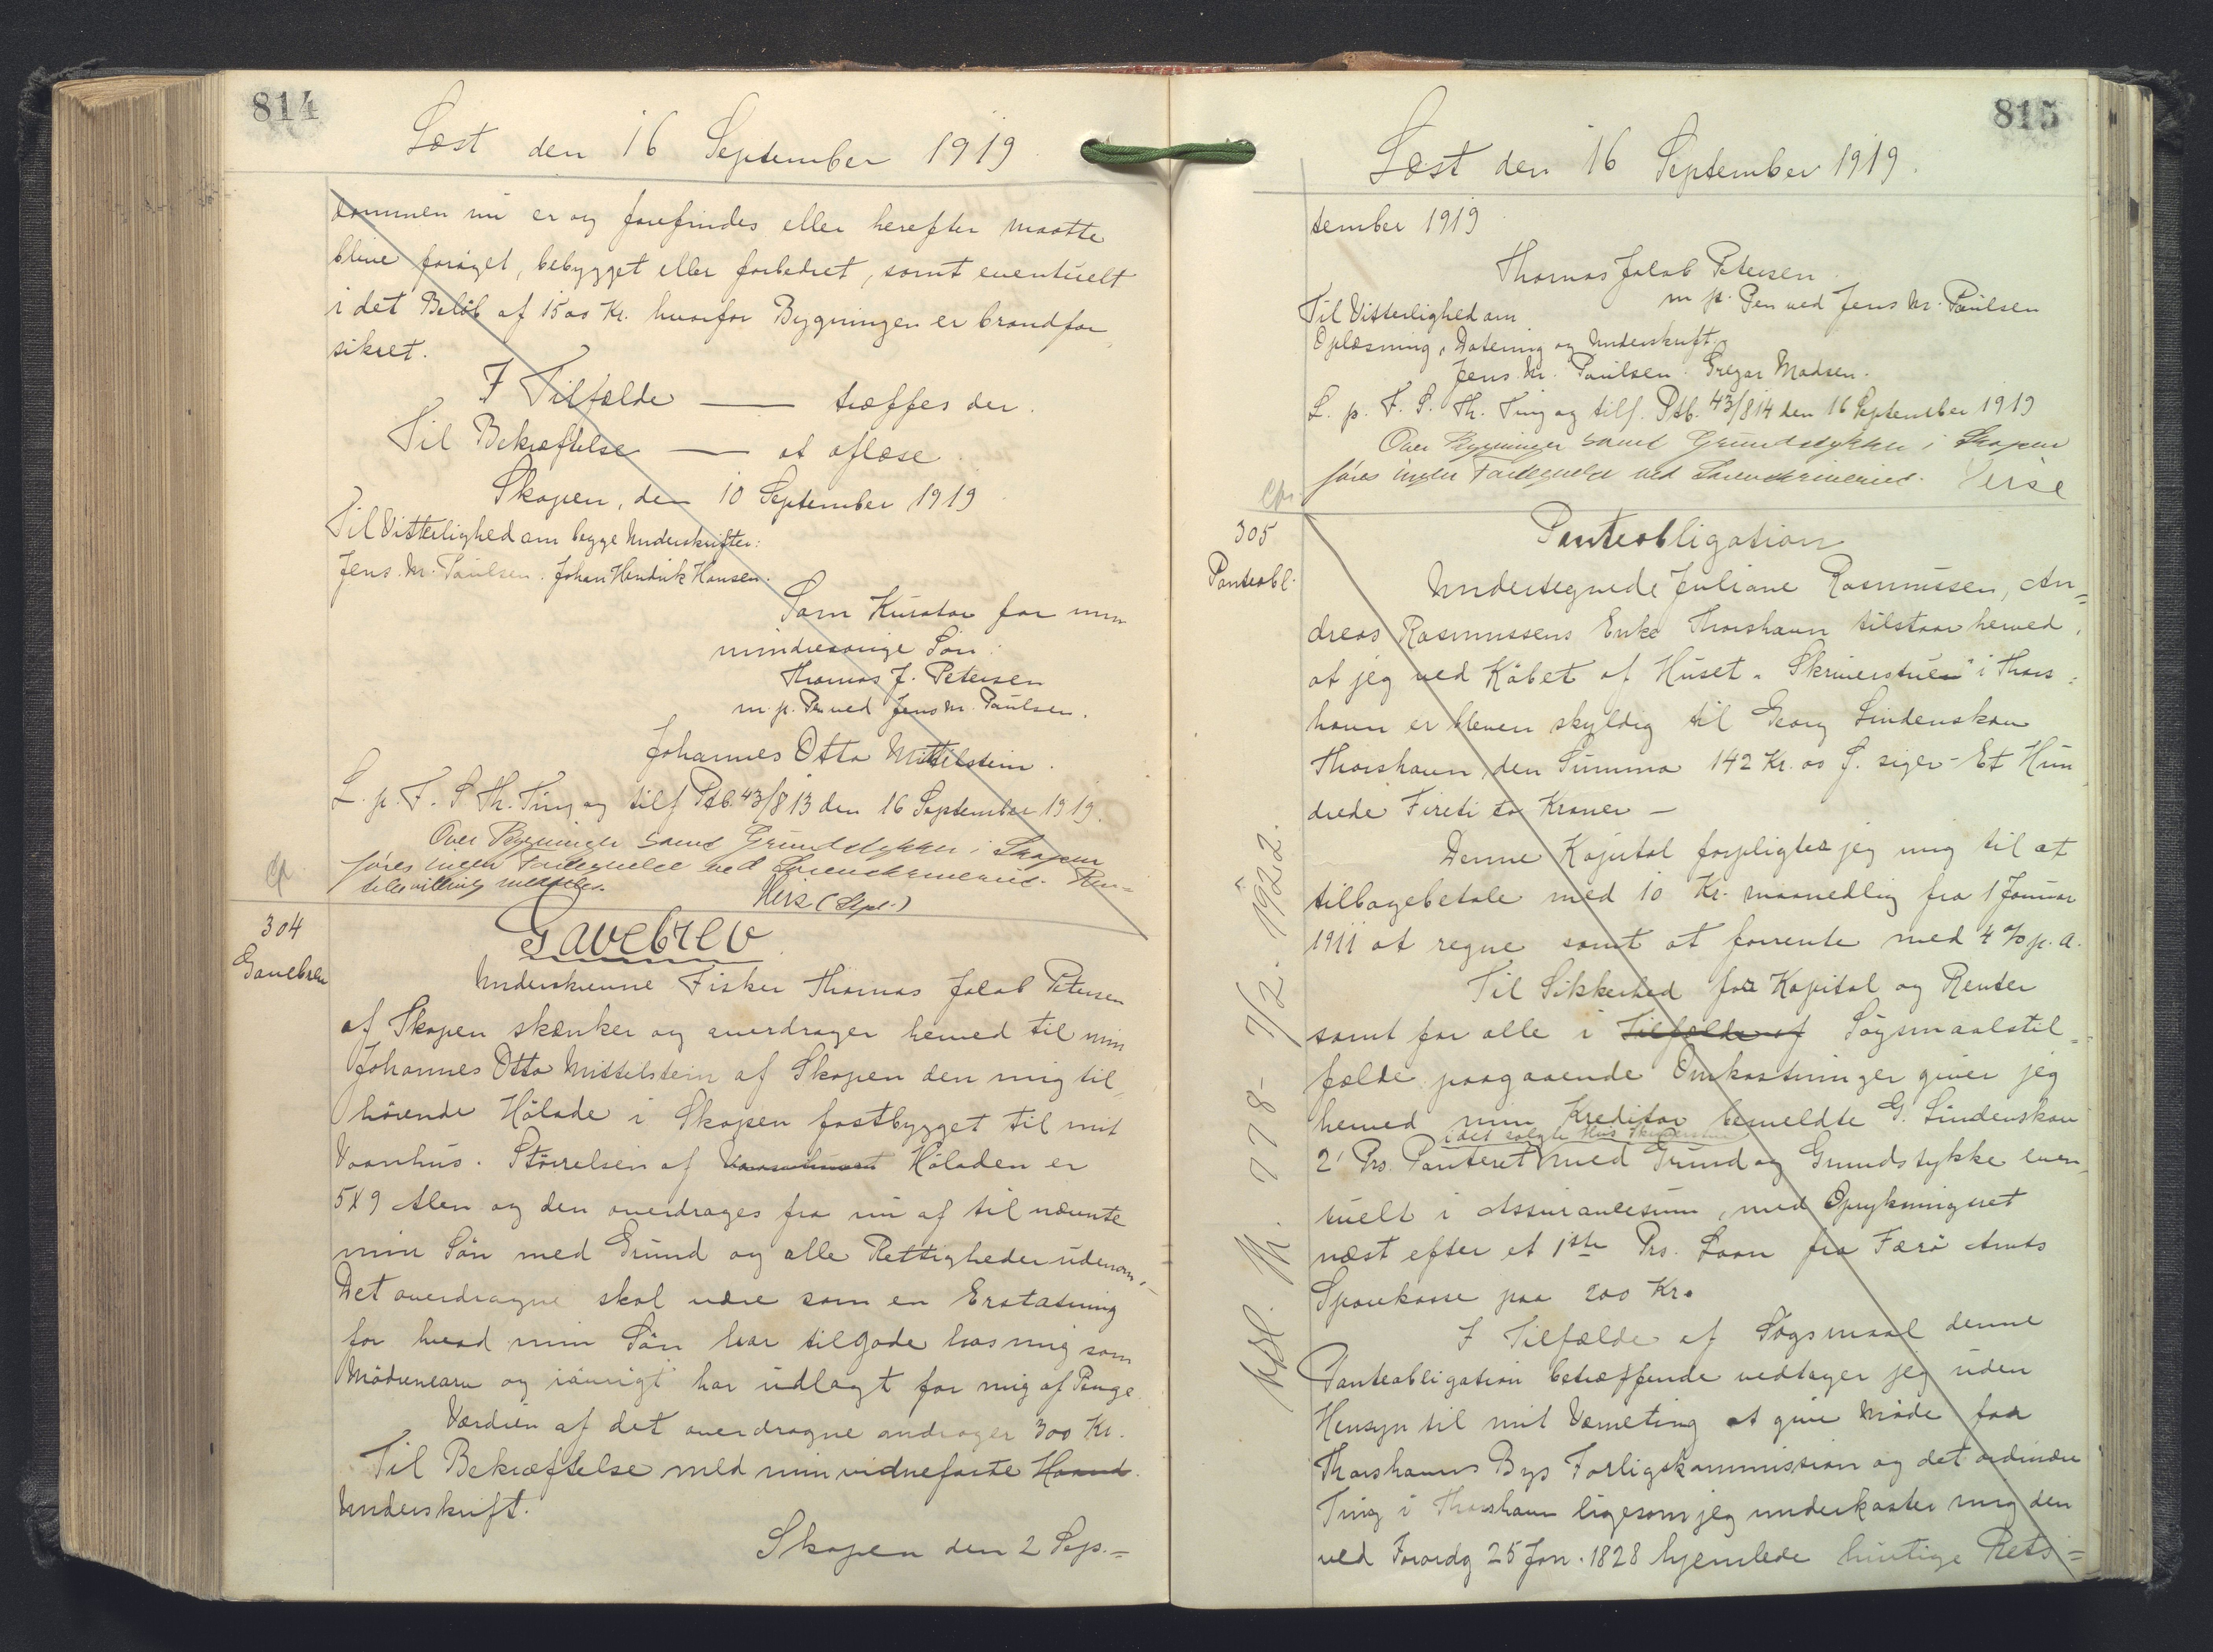 814
Læst den 16 September 1919
kommen nu er og forefindes eller herefter maatte
blive forøget, bebygget eller forbedret, samt eventuelt
i det Beløb af 1500 Kr. hvorfor Bygningen er brandfor
sikret.
I Tilfælde — træffes der.
Til Bekræftelse — at aflæse.
Skopen, den 10 September 1919
Til Vitterlighed om begge Underskrifter:
Jens M. Paulsen. Johan Hendrik Hansen.
Som Kurator for min
mindreaarige Søn:
Thomas J. Petersen
m. p. Pen ved Jens M. Paulsen.
Johannes Otto Mittelstein.
L. p. F. S. Th. Ting og tilf. Ptb. 43/813 den 16 September 1919.
Over Bygninger samt Grundstykker i Skopen
føres ingen Fortegnelse ved Sorenskriveriet. Ren=
tebevilling meddeles.
304
Gavebrev
Gavebrev
Underskrevne Fisker Thomas Jakob Petersen
af Skopen skænker og overdrager herved til min
Johannes Otto Mittelstein af Skopen den mig til
hørende Hølade i Skopen fastbygget til mit
Vaanhus. Størrelsen af Høladen er
5X9 Alen og den overdrages fra nu af til nævnte
min Søn med Grund og alle Rettigheder udenom.
Det overdragne skal være som en Erstatning
for hvad min Søn har tilgode hos mig som
Mødrenearv og iøvrigt har udlagt for mig af Penge.
Værdien af det overdragne andrager 300 Kr.
Til Bekræftelse med min vidnefaste Haand
Underskrift.
Skopen den 2 Sep.=
815
Læst den 16 September 1919.
tember 1919
Thomas Jakob Petersen
m. p. Pen ved Jens M. Paulsen
Til Vitterlighed om
Oplæsning, Datering og Underskrift.
Jens M. Paulsen. Gregar Madsen.
L. p. F. S. Th. Ting og tilf. Ptb. 43/814 den 16 September 1919
Over Bygninger samt Grundstykker i Skopen
føres ingen Fortegnelse ved Sorenskriveriet.
305
Panteobl.
Panteobligation
Undertegnede Juliane Rasmussen, An=
dreas Rasmussens Enke Thorshavn tilstaar herved,
at jeg ved Købet af Huset "Skriverstuen" i Thors=
havn er bleven skyldig til Georg Lindenskov
Thorshavn den Summa 142 Kr. 00 Ø. siger - Et Hun
drede Fireti to Kroner —
Denne Kapital forpligter jeg mig til at
tilbagebetale med 10 Kr. maanedlig fra 1 Januar
1911 at regne samt at forrente med 4 % p. a.
Til Sikkerhed for Kapital og Renter
samt for alle i Tilfælde af Søgsmaalstil=
fælde paagaaende Omkostninger giver jeg
herved min Kreditor bemeldte G. Lindenskov
i det solgte Hus Skriverstuen
2' Prs. Panteret med Grund og Grundstykke even
tuelt i Assurancesum, med Oprykningsret
næst efter et 1ste Prs. Laan fra Færø Amts
Sparekasse paa 200 Kr.
I Tilfælde af Søgsmaal denne
Panteobligation betræffende vedtager jeg uden
Hensyn til mit Værneting at give Møde for
Thorshavns Bys Forligskommission og det ordinære
Ting i Thorshavn ligesom jeg underkaster mig den
ved Forordg 25 Jan. 1828 hjemlede hurtige Rets=